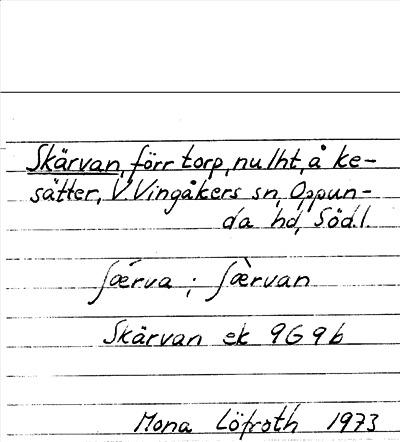 Skärvan, förr torp, nu lht, å Ke-
sätter, V Vingåkers sn, Oppun-
da hd, Södl.
ʃǽrva ; ʃæ̀rvan
Skärvan ek 9G 9b
Mona Löfroth 1973